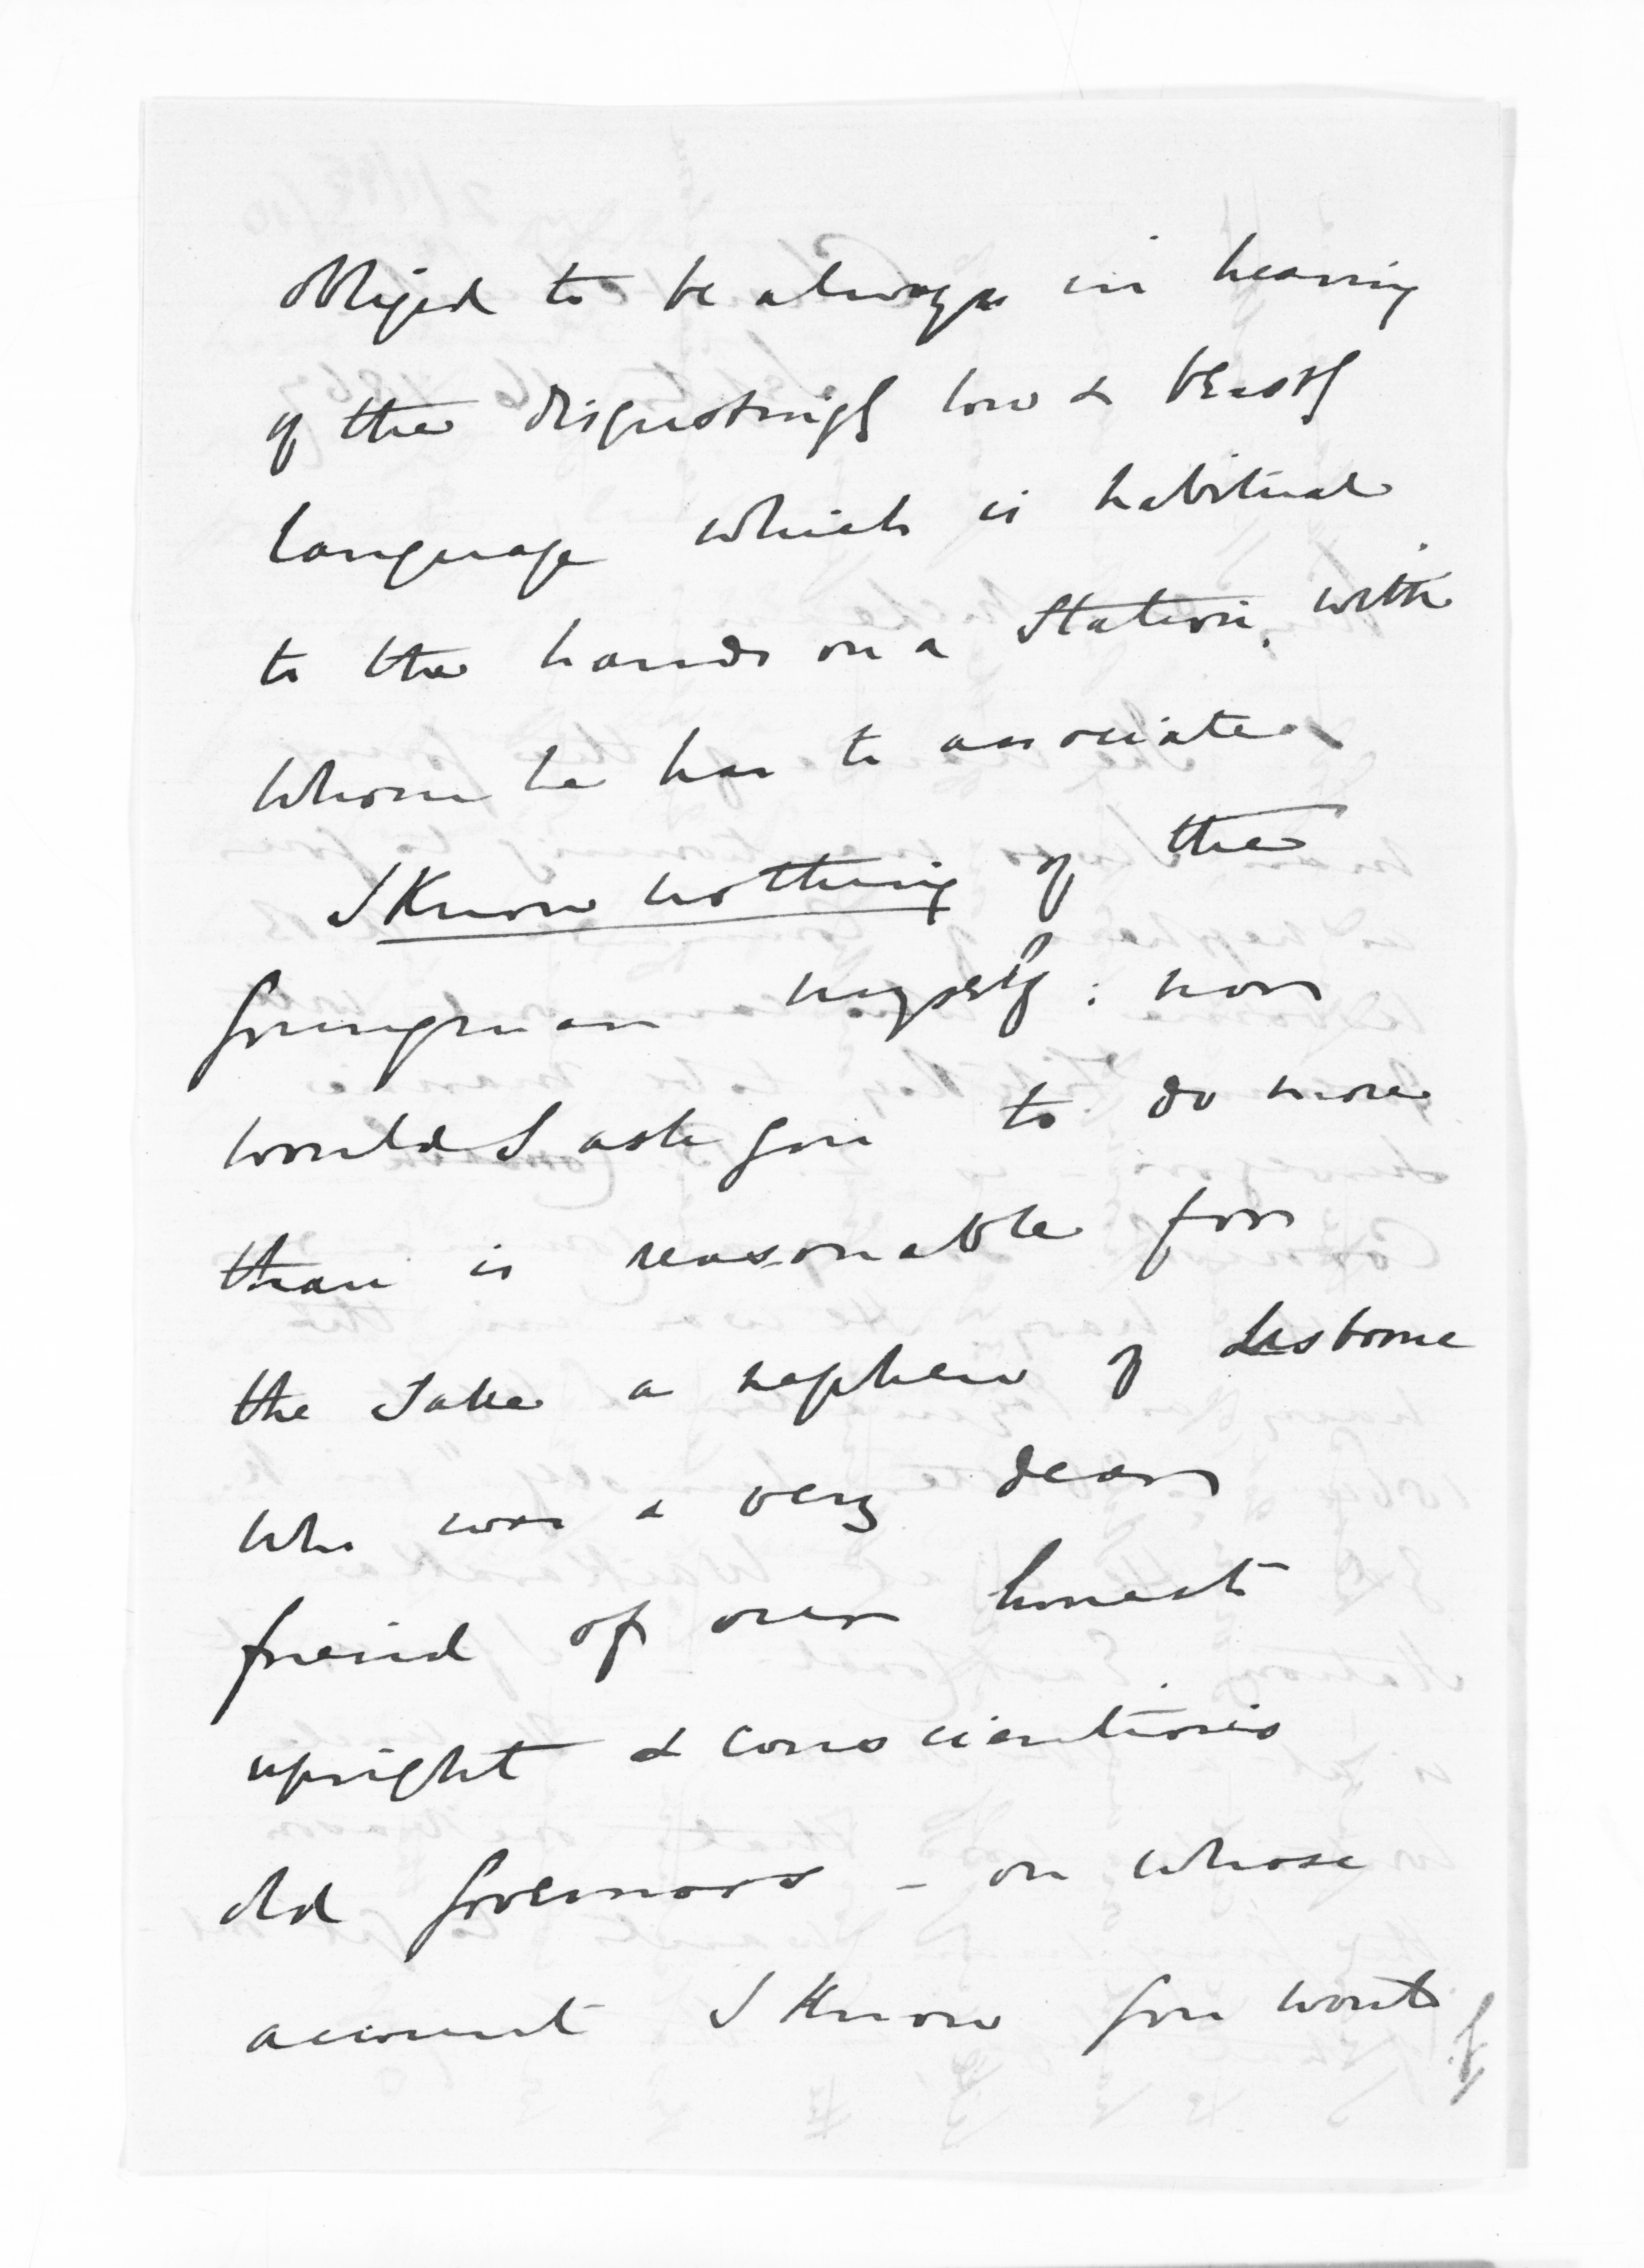 obliged to be always in hearing
of the disgustingly low & beastly
language which is habitual
to the hands on a Station, with
whom he has to associate
I Know nothing of the
young man myself: nor
would I ask you to do more
than is reasonable for
the sake a nephew of Lisborne
who was a very dear
friend of our honest
upright & conscientious
old Governors - on whose
account I Know you wont